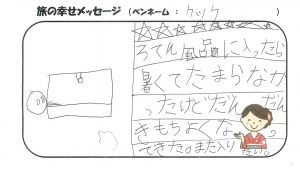 旅の幸せメッセージ（ペンネーム：クック）
ろてん風呂に入ったら
暑くてたまらなか
ったけどだんだん
きもちよくな
てきた。また入り
たい。